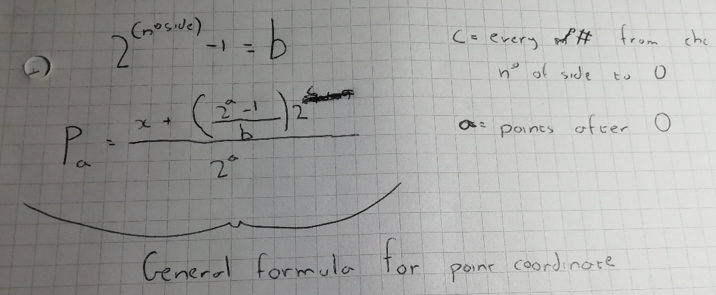 2^(n° side) -1 = b
C = every # from the
n° of side to 0
P_a = (x + ((2^a - 1) / b) 2^c) / 2^a
a = points after 0
General formula for point coordinate